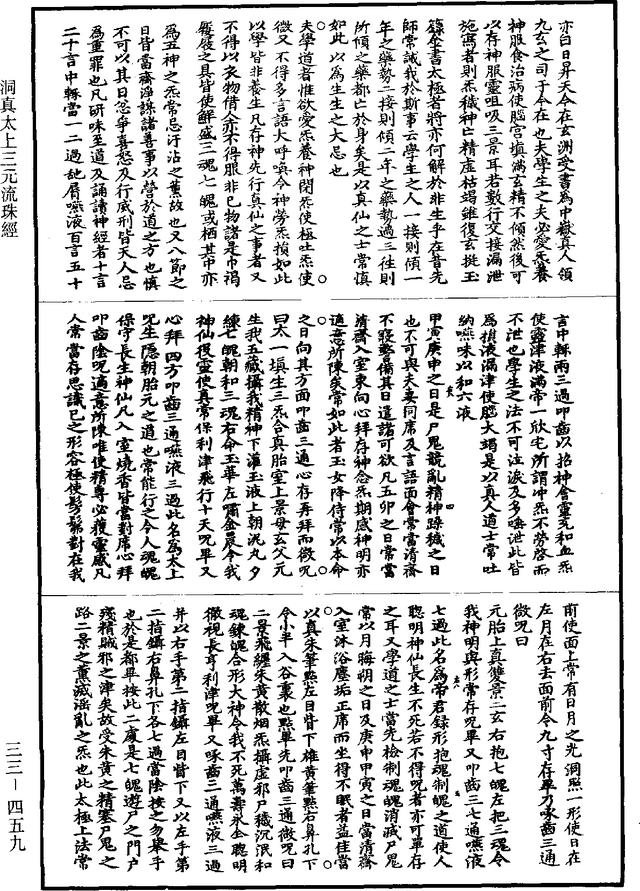 洞真太上三元流珠經
三三－四五九
亦白日昇天今在玄洲受書為中嶽真人領
九玄之司于今在也夫學生之夫必愛炁養
神服食治病使腦宮填滿玄精不傾然後可
以存神服靈咀吸三景耳若數行交接漏泄
施瀉者則炁穢神亡精虛枯竭雖復玄挺玉
籙金書太極者將亦何解於非生乎在昔先
師常誡我於斯事云學生之人一接則傾一
年之藥勢二接則傾二年之藥勢過三往則
所傾之藥都亡於身矣是以真仙之士常慎
如此以為生生之大忌也
夫學道者惟欲愛炁養神閉炁使極吐炁使
微又不得多言語大呼喚令神勞炁損如此
以學皆非養生凡存神先行真仙之事者又
不得以衣物借人亦不得服非己物諸是巾褐
履屐之具皆使鮮盛三魂七魄或栖其巾亦
為五神之炁常忌汙沾之薰故也又八節之
日皆當齋盛謀諸善事以營於道之方也慎
不可以其日忿爭喜怒及行威刑皆天人忌
為重罪也凡研味至道及誦讀神經者十言
二十言中輒當一二過舐脣嚥液百言五十
言中輒兩三過叩齒以招神會靈充和血炁
使靈津液滿帝一欣宅所謂沖炁不勞啓而
不泄也學生之法不可泣淚及多唾泄此皆
為損液漏津使腦大竭是以真人道士常吐
納嚥味以和六液
甲寅庚申之日是尸鬼競亂精神躁穢之日
也不可與夫妻同席及言語面會當清齋
不寢警備其日遣諸可欲凡五卯之日常當
清齋入室東向心拜存神念炁期感神明亦
適意所陳矣常如此者玉女降侍常以本命
之日向其方面叩齒三通心存再拜而微呪
曰太一填生三炁合真胎室上景母玄父元
生我五藏攝我精神下灌玉液上朝泥丸夕
練七魄朝和三魂右命玉華左嘯金晨令我
神仙役靈使真常保利津飛行十天呪畢又
心拜四方叩齒三通嚥液三過此名為太上
呪生隱朝胎元之道也常能行之令人魂魄
保守長生神仙凡入室燒香皆當對席心拜
叩齒陰呪適意所陳唯使精專必獲靈感凡
人常當存思識己之形容極使髣髴對在我
前使面上常有日月之光洞照一形使日在
左月在右去面前令九寸存畢乃啄齒三通
微呪曰
元胎上真雙景二玄右抱七魄左把三魂令
我神明與形常存呪畢又叩齒三七通嚥液
七過此名為帝君錄形抱魂制魄之道使人
聰明神仙長生不死若不得呪者亦可單存
之耳又學道之士當先檢制魂魄消滅尸鬼
常以月晦朔之日及庚申甲寅之日當清齋
入室沐浴塵垢正席而坐得不眠者益佳當
以真朱筆點左目眥下雄黃筆點右鼻孔下
令小半入谷裏也點畢先叩齒三通微呪曰
二景飛纏朱黃散烟炁攝虛邪尸穢沉泯和
魂鍊魄合形大神令我不死萬壽永全聰明
徹視長亨利津呪畢又啄齒三通嚥液三過
并以右手第二指躡左目眥下又以左手第
二指躡右鼻孔下各七過當陰按之勿舉手
也於是都畢按此二處是七魄遊尸之門戶
殘精賊邪之津矣故受朱黃之精塞尸鬼之
路二景之薰滅淫亂之炁也此太極上法常